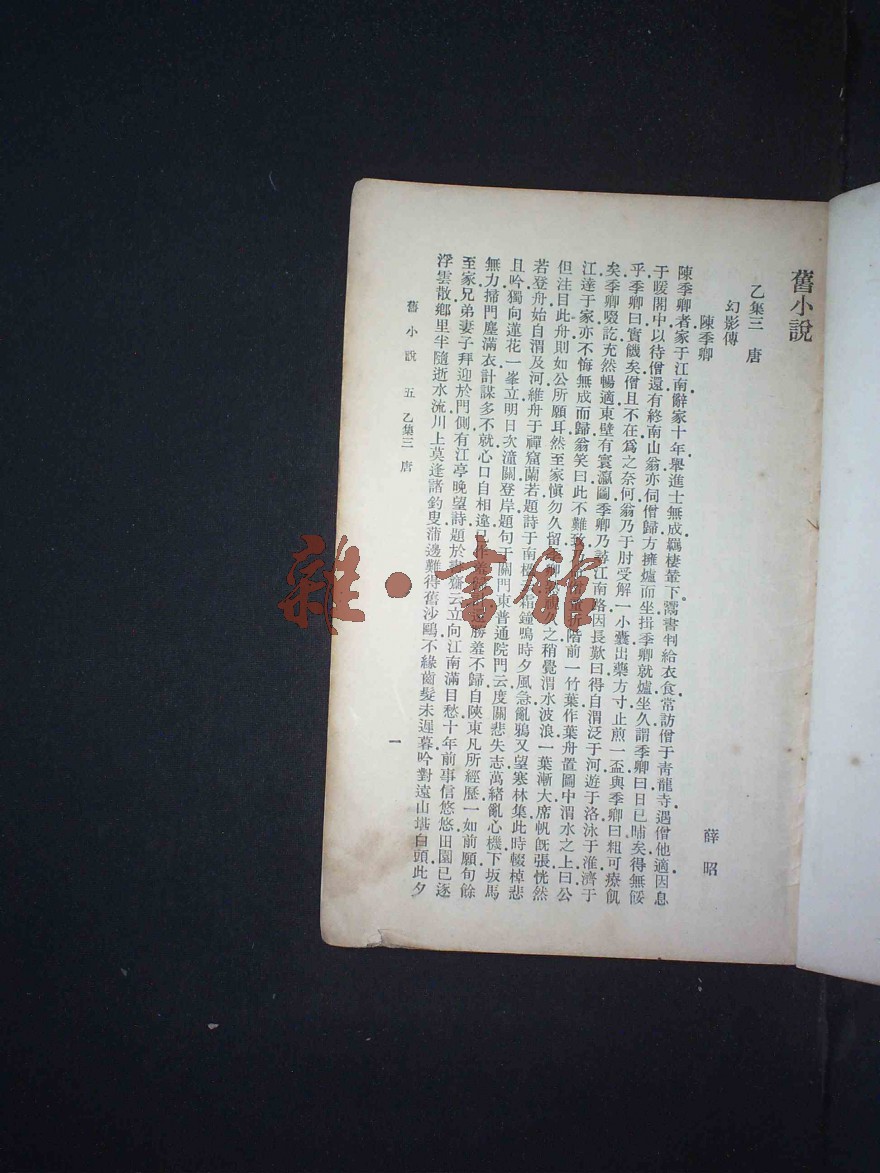 舊小說
乙集三　唐
幻影傳
薛昭
陳季卿
陳季卿者家于江南辭家十年舉進士無成羈棲輦下鬻書判給衣食常訪僧于靑龍寺遇僧他適因息
于暖閣中以待僧還有終南山翁亦伺僧歸方擁爐而坐揖季卿就爐坐久謂季卿曰日已晡矣得無餒
乎季卿曰實饑矣僧且不在爲之奈何翁乃于肘受解一小囊出藥方寸止煎一盃與季卿曰粗可療飢
矣季卿啜訖充然暢適東壁有寰瀛圖季卿乃尋江南路因長歎曰得自渭泛于河遊于洛泳于淮濟于
江達于家亦不悔無成而歸翁笑曰此不難致 折階前一竹葉作葉舟置圖中渭水之上曰公
但注目此舟則如公所願耳然至家愼勿久留 之稍覺渭水波浪一葉漸大席帆旣張恍然
若登舟始自渭及河維舟于禪窟蘭若題詩于南 霜鐘鳴時夕風急亂鴉又望寒林集此時輟棹悲
且吟獨向蓮花一峯立明日次潼關登岸題句于關門東普通院門云度關悲失志萬緒亂心機下坂馬
無力掃門塵滿衣計謀多不就心口自相違已作羞 勝羞不歸自陝東凡所經歷一如前願旬餘
至家兄弟妻子拜迎於門側有江亭晚望詩題於書齋云立向江南滿目愁十年前事信悠悠田園已逐
浮雲散鄉里半隨逝水流川上莫逢諸釣叟蒲邊難得舊沙鷗不緣齒髮未遲暮吟對遠山堪白頭此夕
舊小說　五　乙集三　唐
一
雜·書館